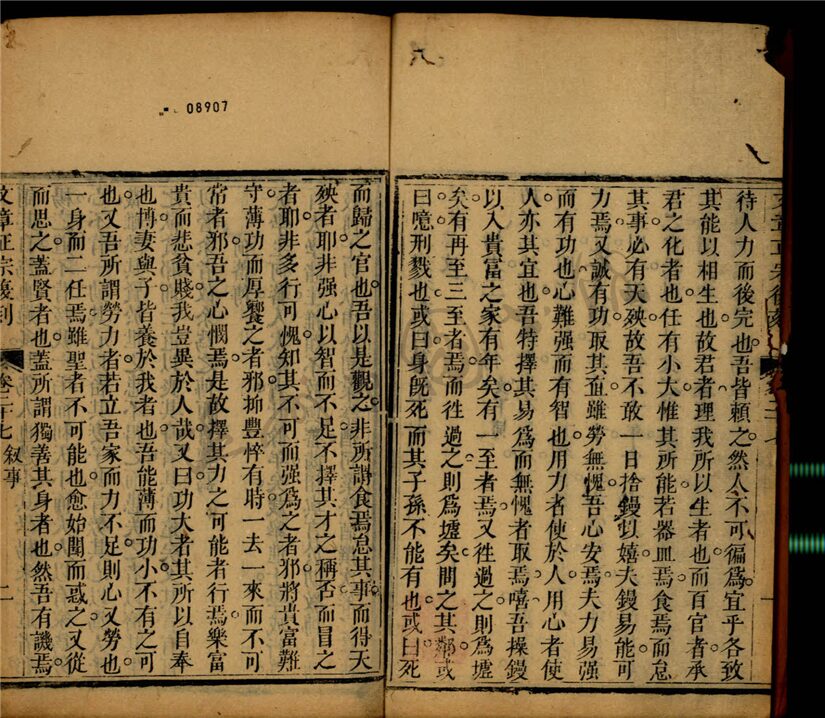 08907
待人力而後完也吾皆賴之然人不可徧爲宜乎各致
其能以相生也故君者理我所以生者也而百官者承
君之化者也任有小大惟其所能若器皿焉食焉而怠
其事必有天殃故吾不敢一日捨鏝以嬉夫鏝易能可
力焉又誠有功取其直雖勞無愧吾心安焉夫力易强
而有功也心難强而有智也用力者使於人用心者使
人亦其宜也吾特擇其易爲而無愧者取焉嘻吾操鏝
以入貴富之家有年矣有一至者焉又徃過之則爲墟
矣有再至三至者焉而徃過之則爲墟矣問之其鄰或
曰噫刑戮也或曰身旣死而其子孫不能有也或曰死
而歸之官也吾以是觀之非所謂食焉怠其事而得天
殃者耶非强心以智而不足不擇其才之稱否而冒之
者耶非多行可愧知其不可而强爲之者邪將貴富難
守薄功而厚饗之者邪抑豐悴有時一去一來而不可
常者邪吾之心憫焉是故擇其力之可能者行焉樂富
貴而悲貧賤我豈異於人哉又曰功大者其所以自奉
也博妻與子皆養於我者也吾能薄而功小不有之可
也又吾所謂勞力者若立吾家而力不足則心又勞也
一身而二任焉雖聖者不可能也愈始聞而惑之又從
而思之蓋賢者也蓋所謂獨善其身者也然吾有譏焉
文章正宗復刻 卷二十七 叙事 二